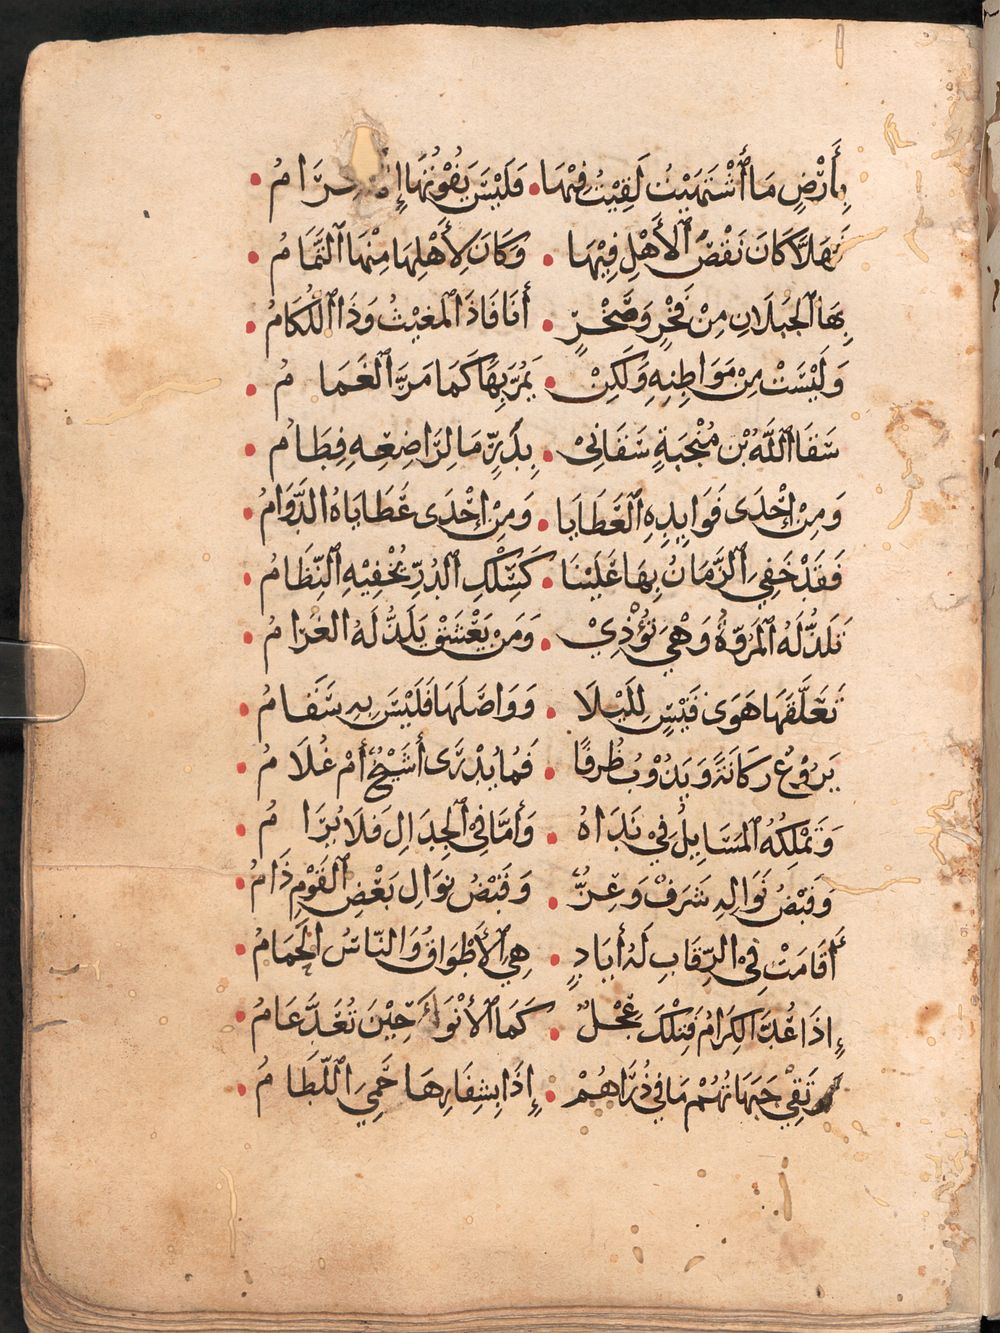 بِأَرْضٍ مَا ٱشْتَهَيْتُ لَقِيْتُ فِيْهَا • وَلَيْسَ يَفُوْتُهَا إِلَّا كِرَامُ •
فَهَلَّا كَانَ نَقْصُ ٱلْأَهْلِ فِيْهَا • وَكَانَ لِأَهْلِهَا مِنْهَا ٱلتَّمَامُ •
بِهَا ٱلْجَبَلَانِ مِنْ فَخْرٍ وَصَخْرٍ • أَنَافَا ذَا ٱلْمغِيْثُ وَذَا ٱللُّكَامُ •
وَلَيْسَتْ مِنْ مَوَاطِنِهِ وَلَكِنْ • يَمُرُّ بِهَا كَمَا مَرَّ ٱلْغَمَامُ •
سَقَا ٱللَّهُ بْن مُنْجِبَةٍ سَقَانِىْ • بِدَرٍّ مَا لِرَاضِعِهِ فِطَامُ •
وَمِنْ إِحْدَى فَوَايِدِهِ ٱلْعَطَايَا • وَمِنْ إِحْدَى عَطَايَاهُ الدَّوَامُ •
فَقَدْ خَفِيَ ٱلزَّمَانُ بِهَا عَلَيْنَا • كَسِلْكِ ٱلدُّرِّ يُخْفِيْهِ ٱلنِّظَامُ •
تَلَذُّ لَهُ ٱلْمَرُوَّةُ وَهْيَ تُؤْذِيْ • وَمَنْ يَعْشَقْ يَلَذُّ لَهُ الغَرَامُ •
تَعَلَّقَهَا هَوَى قَيْسٍ لِلَيْلَا • وَوَاصَلَهَا فَلَيْسَ بِهِ سَقَامُ •
يَرُوْعُ رَكَانَةً وَيَذُوْبُ ظُرفًا • فَمَا يُدْرَى أَشَيْخٌ أَمْ غُلَامُ •
وَتَمْلِكُهُ ٱلْمَسَايِلُ فِيْ نَدَاهُ • وَأَمَّا فِىْ ٱلْجِدَالِ فَلَا يُرَامُ •
وَقَبْضُ نَوَالِهِ شَرَفٌ وَعِزٌّ • وَقَبْضُ نَوَالِ بَعْضِ ٱلْقَوْمِ ذَامُ •
أَقَامَتْ فِى الرِّقَابِ لَهُ أَيَادٍ • هِيَ ٱلْأَطْوَاقُ وَالنَّاسُ الْحَمَامُ •
إِذَا عُدَّ الكِرَامُ فَتِلْكَ عِجْلٌ • كَمَا ٱلْأَنْوَاءُ حِيْنَ تُعَدُّ عَامُ •
تَقِيْ جَبَهَاتُهُمْ مَا فِيْ ذُرَاهُمْ • إِذَا بِشِفَارِهَا حَمِيَ اللِّطَامُ •